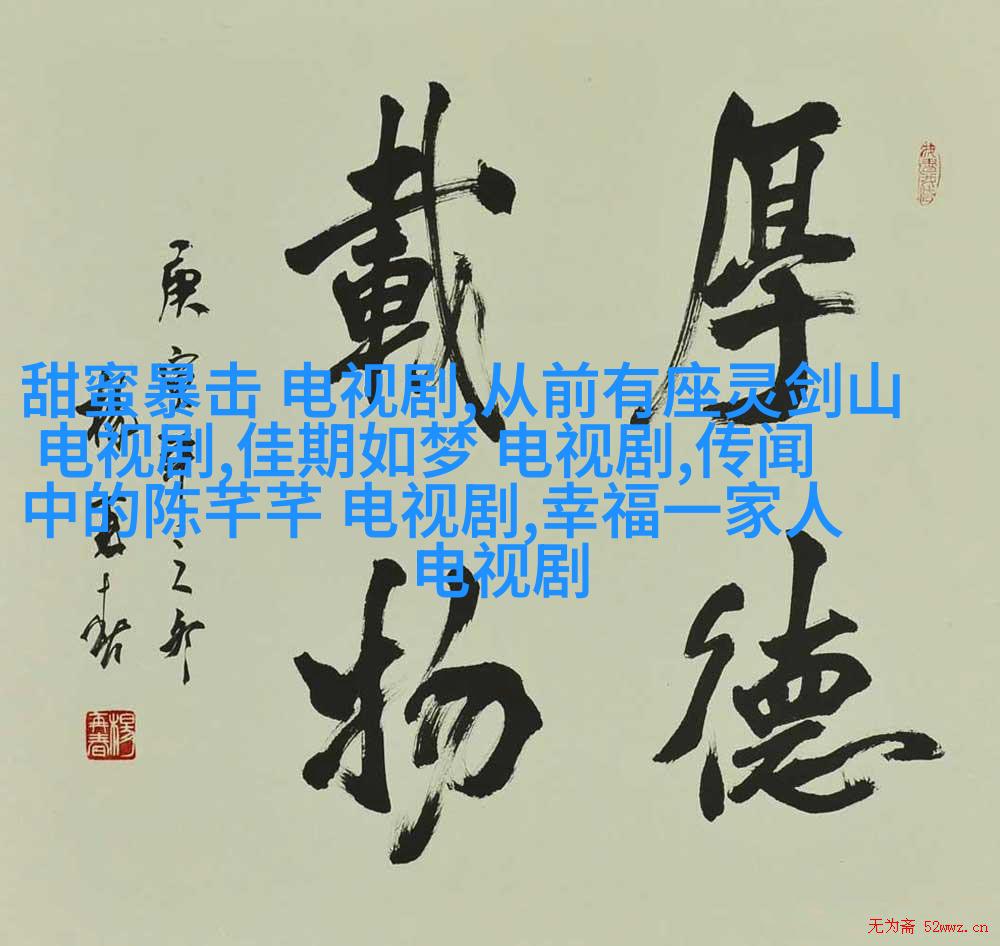 厚德
載物
庚寅年之卯
楊再春
楊再春
甜蜜暴击 电视剧,从前有座灵剑山
电视剧,佳期如梦 电视剧,传闻
中的陈芊芊 电视剧,幸福一家人
电视剧
无为斋 52wwz.cn